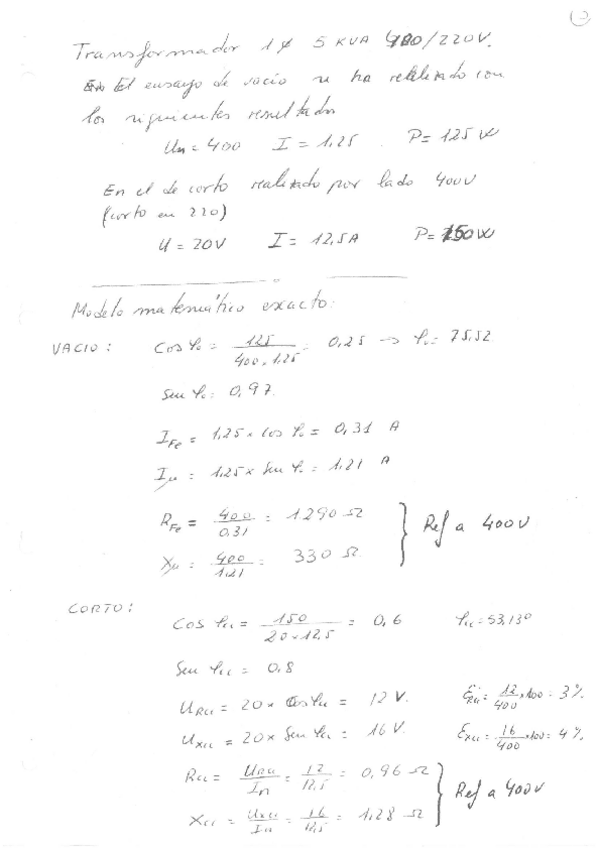 Transformador 1φ 5 KVA 400/220V.
En El ensayo de vacio se ha realizado con
los siguientes resultados
Un = 400 I = 1,25 P = 125 W
En el de corto realizado por lado 400V
(corto en 220)
U = 20V I = 12,5A P = 150W
Modelo matemático exacto:
VACIO: Cos φo = 125 / 400 x 1,25 = 0,25 → φo = 75,52
Sen φo = 0,97
IFe = 1,25 x cos φo = 0,31 A
Iμ = 1,25 x sen φo = 1,21 A
RFe = 400 / 0,31 = 1290 Ω
Xμ = 400 / 1,21 = 330 Ω
} Ref a 400V
CORTO: Cos φcc = 150 / 20 x 12,5 = 0,6 φcc = 53,130
Sen φcc = 0,8
URcc = 20 x Cos φcc = 12 V. ERcc = 12/400 x 100 = 3%
UXcc = 20 x Sen φcc = 16 V. EXcc = 16/400 x 100 = 4%
Rcc = URcc / In = 12 / 12,5 = 0,96 Ω
Xcc = Uxcc / In = 16 / 12,5 = 1,28 Ω
} Ref a 400V